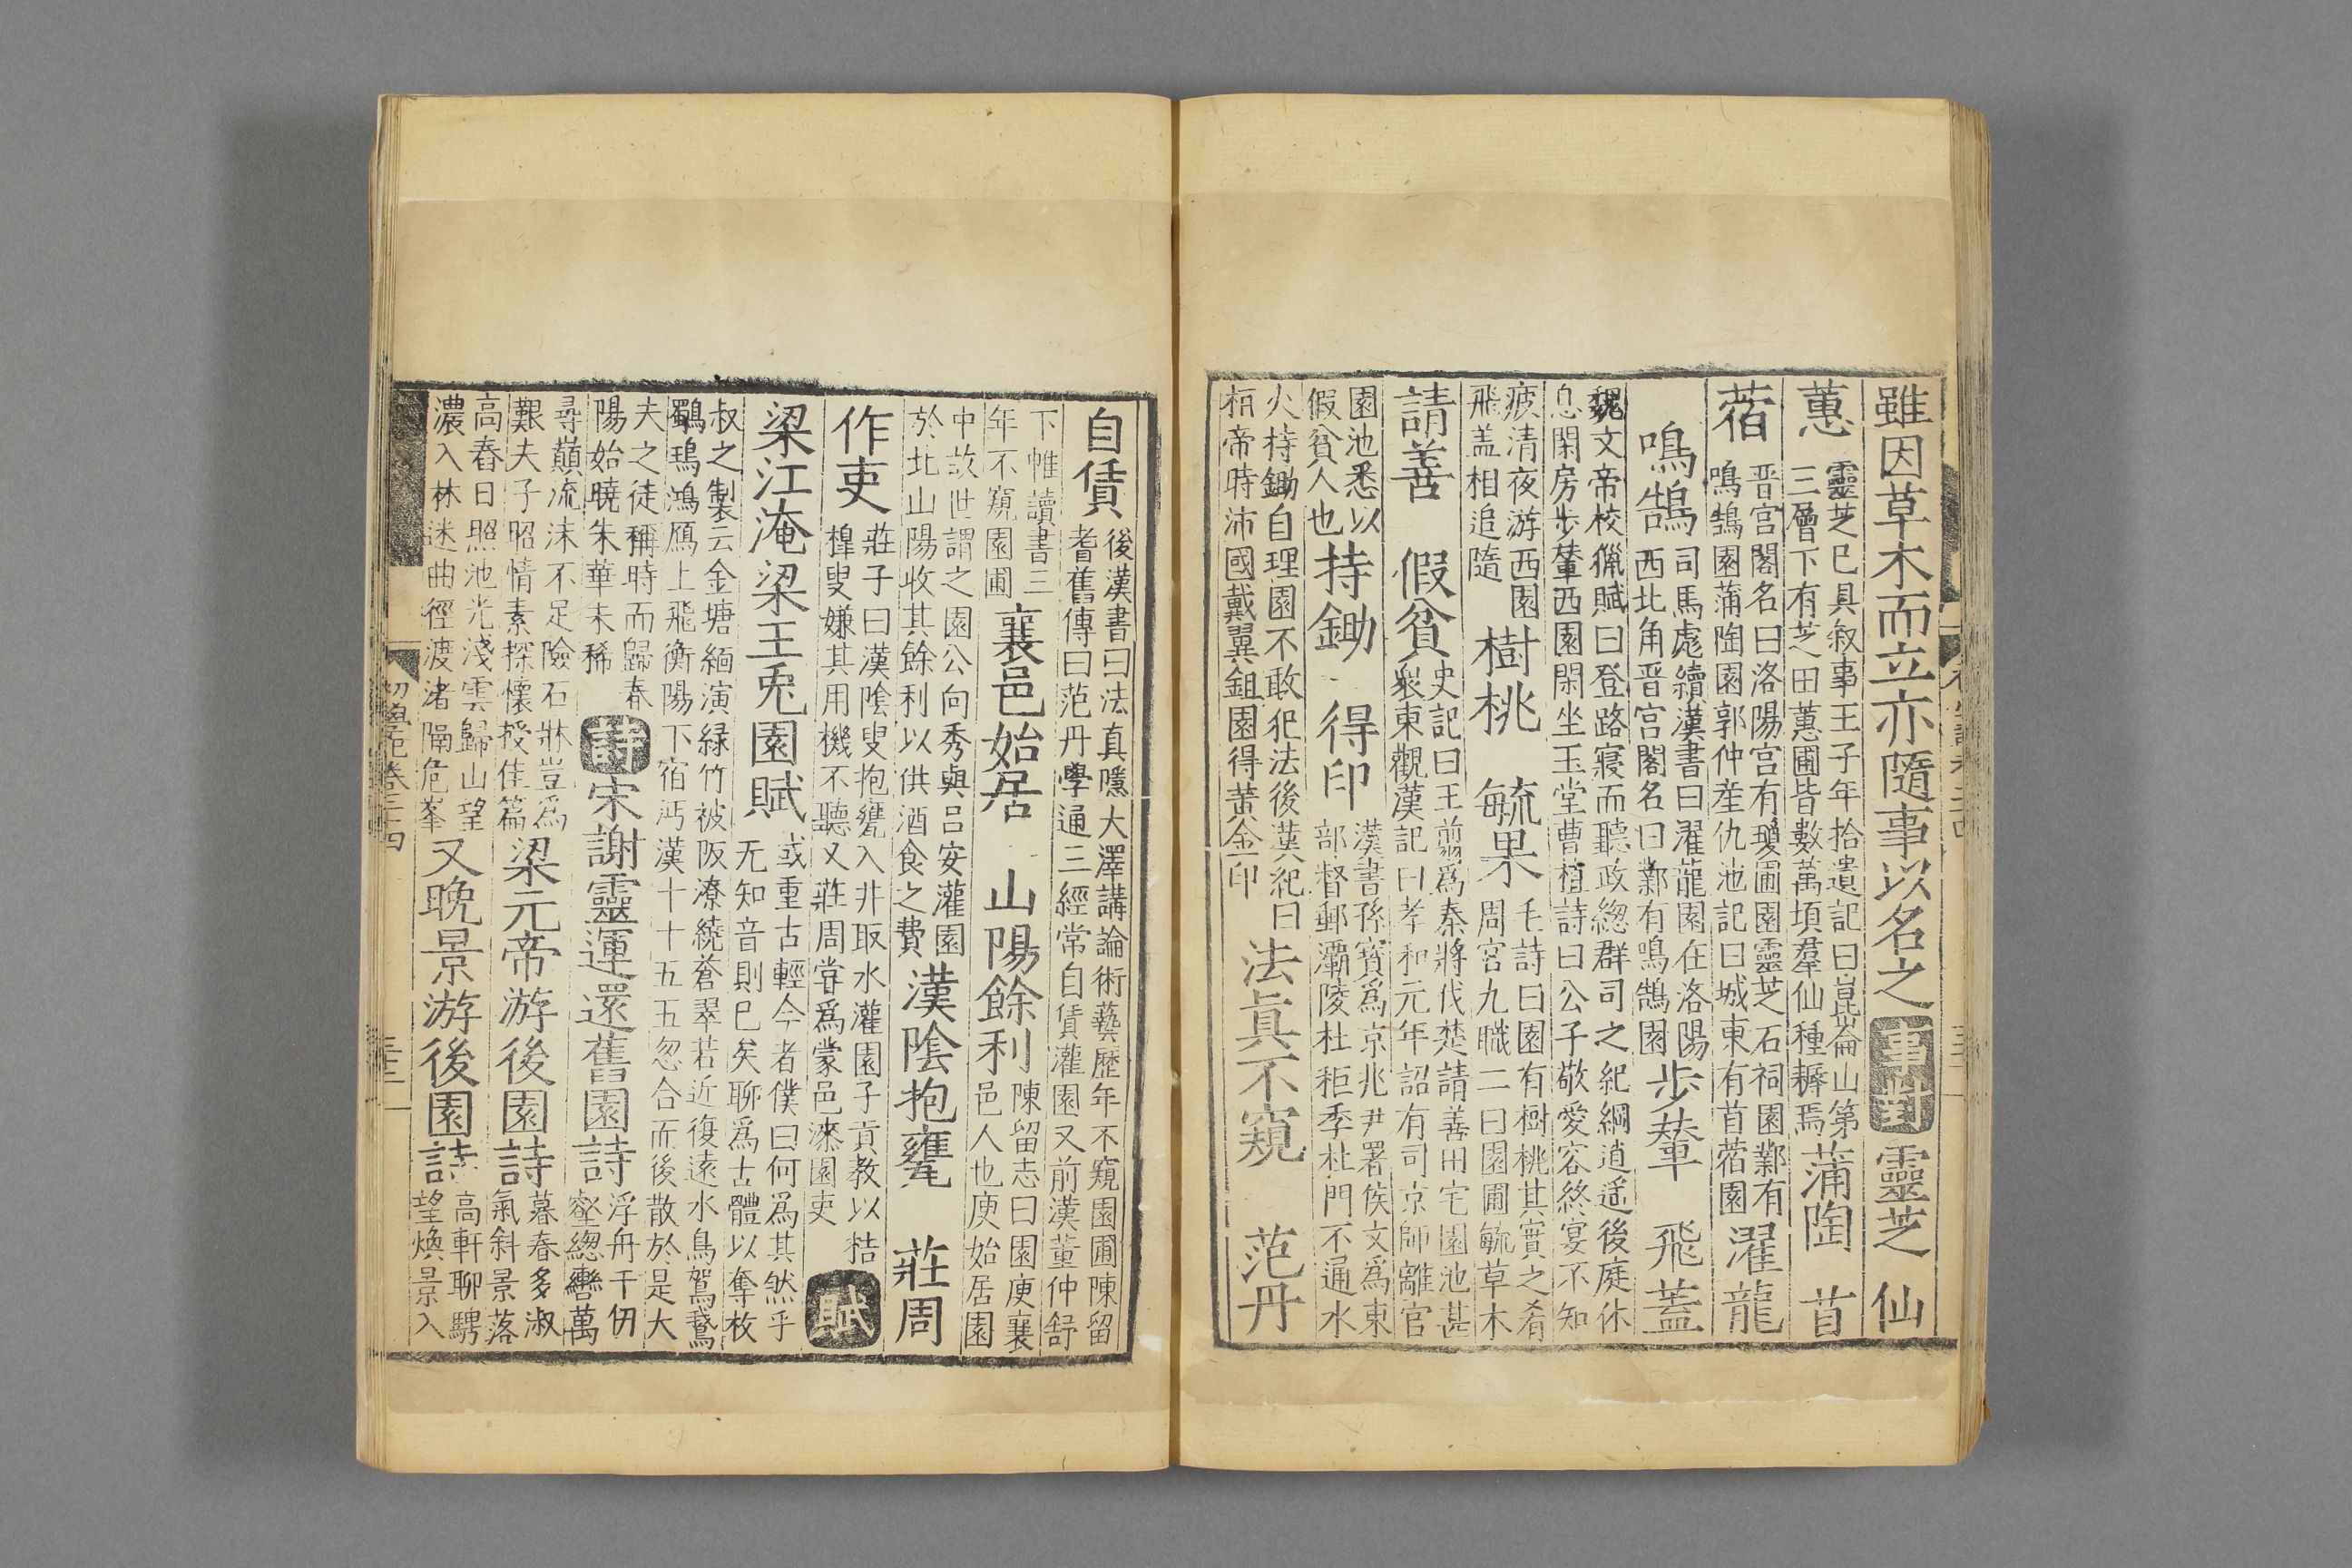 雖因草木而立亦隨事以名之事對靈芝 仙
蕙靈芝已具叙事王子年拾遺記曰崑崙山第
三層下有芝田蕙圃皆數萬頃羣仙種耨焉蒲陶 苜
蓿晋宫閣名曰洛陽宫有瓊圃園靈芝石祠園鄴有
鳴鵠園蒲陶園郭仲産仇池記曰城東有苜蓿園濯龍
鳴鵠司馬彪續漢書曰濯龍園在洛陽
西北角晋宫閣名曰鄴有鳴鵠園步輦 飛蓋
魏文帝校獵賦曰登路寢而聽政緫群司之紀綱逍遥後庭休
息閑房步輦西園閑坐玉堂曹植詩曰公子敬愛容終宴不知
疲清夜游西園
飛盖相追隨樹桃 毓果毛詩曰園有樹桃其實之肴
周宫九職二曰園圃毓草木
請善 假貧史記曰王翦爲秦將伐楚請善田宅園池甚
衆東觀漢記曰孝和元年詔有司京師離官
園池悉以
假貧人也持鋤 得印漢書孫寳爲京兆尹署侯文爲東
部督郵灞陵杜秬季杜門不通水
火持鋤自理園不敢犯法後漢紀曰
桓帝時沛國戴翼鉏園得黄金印法眞不窺 范丹
自賃後漢書曰法真隱大澤講論術藝歷年不窺園圃陳留
耆舊傳曰范丹學通三經常自賃灌園又前漢董仲舒
下帷讀書三
年不窺園圃襄邑始居 山陽餘利陳留志曰園庾襄
邑人也庾始居園
中故世謂之園公向秀與吕安灌園
於北山陽收其餘利以供酒食之費漢隂抱甕 莊周
作吏莊子曰漢隂叟抱甕入井取水灌園子貢教以桔
橰叟嫌其用機不聽又莊周甞爲蒙邑漆園吏賦
梁江淹梁王兎園賦或重古輕今者僕曰何爲其然乎
无知音則已矣聊爲古體以奪枚
叔之製云金塘緬演緑竹被阪潦繞蒼翠若近復遠水鳥駕鵞
鸀鳿鴻鴈上飛衡陽下宿沔漢十十五五忽合而後散於是大
夫之徒稱時而歸春
陽始曉朱華未稀詩宋謝靈運還舊園詩浮舟千仞
壑緫轡萬
尋巔流沫不足險石牀豈爲
艱夫子昭情素探懷授佳篇梁元帝游後園詩暮春多淑
氣斜景落
高舂日照池光淺雲歸山望
濃入林迷曲徑渡渚隔危峯又晚景游後園詩高軒聊騁
望煥景入
初學記卷二十四
三十一